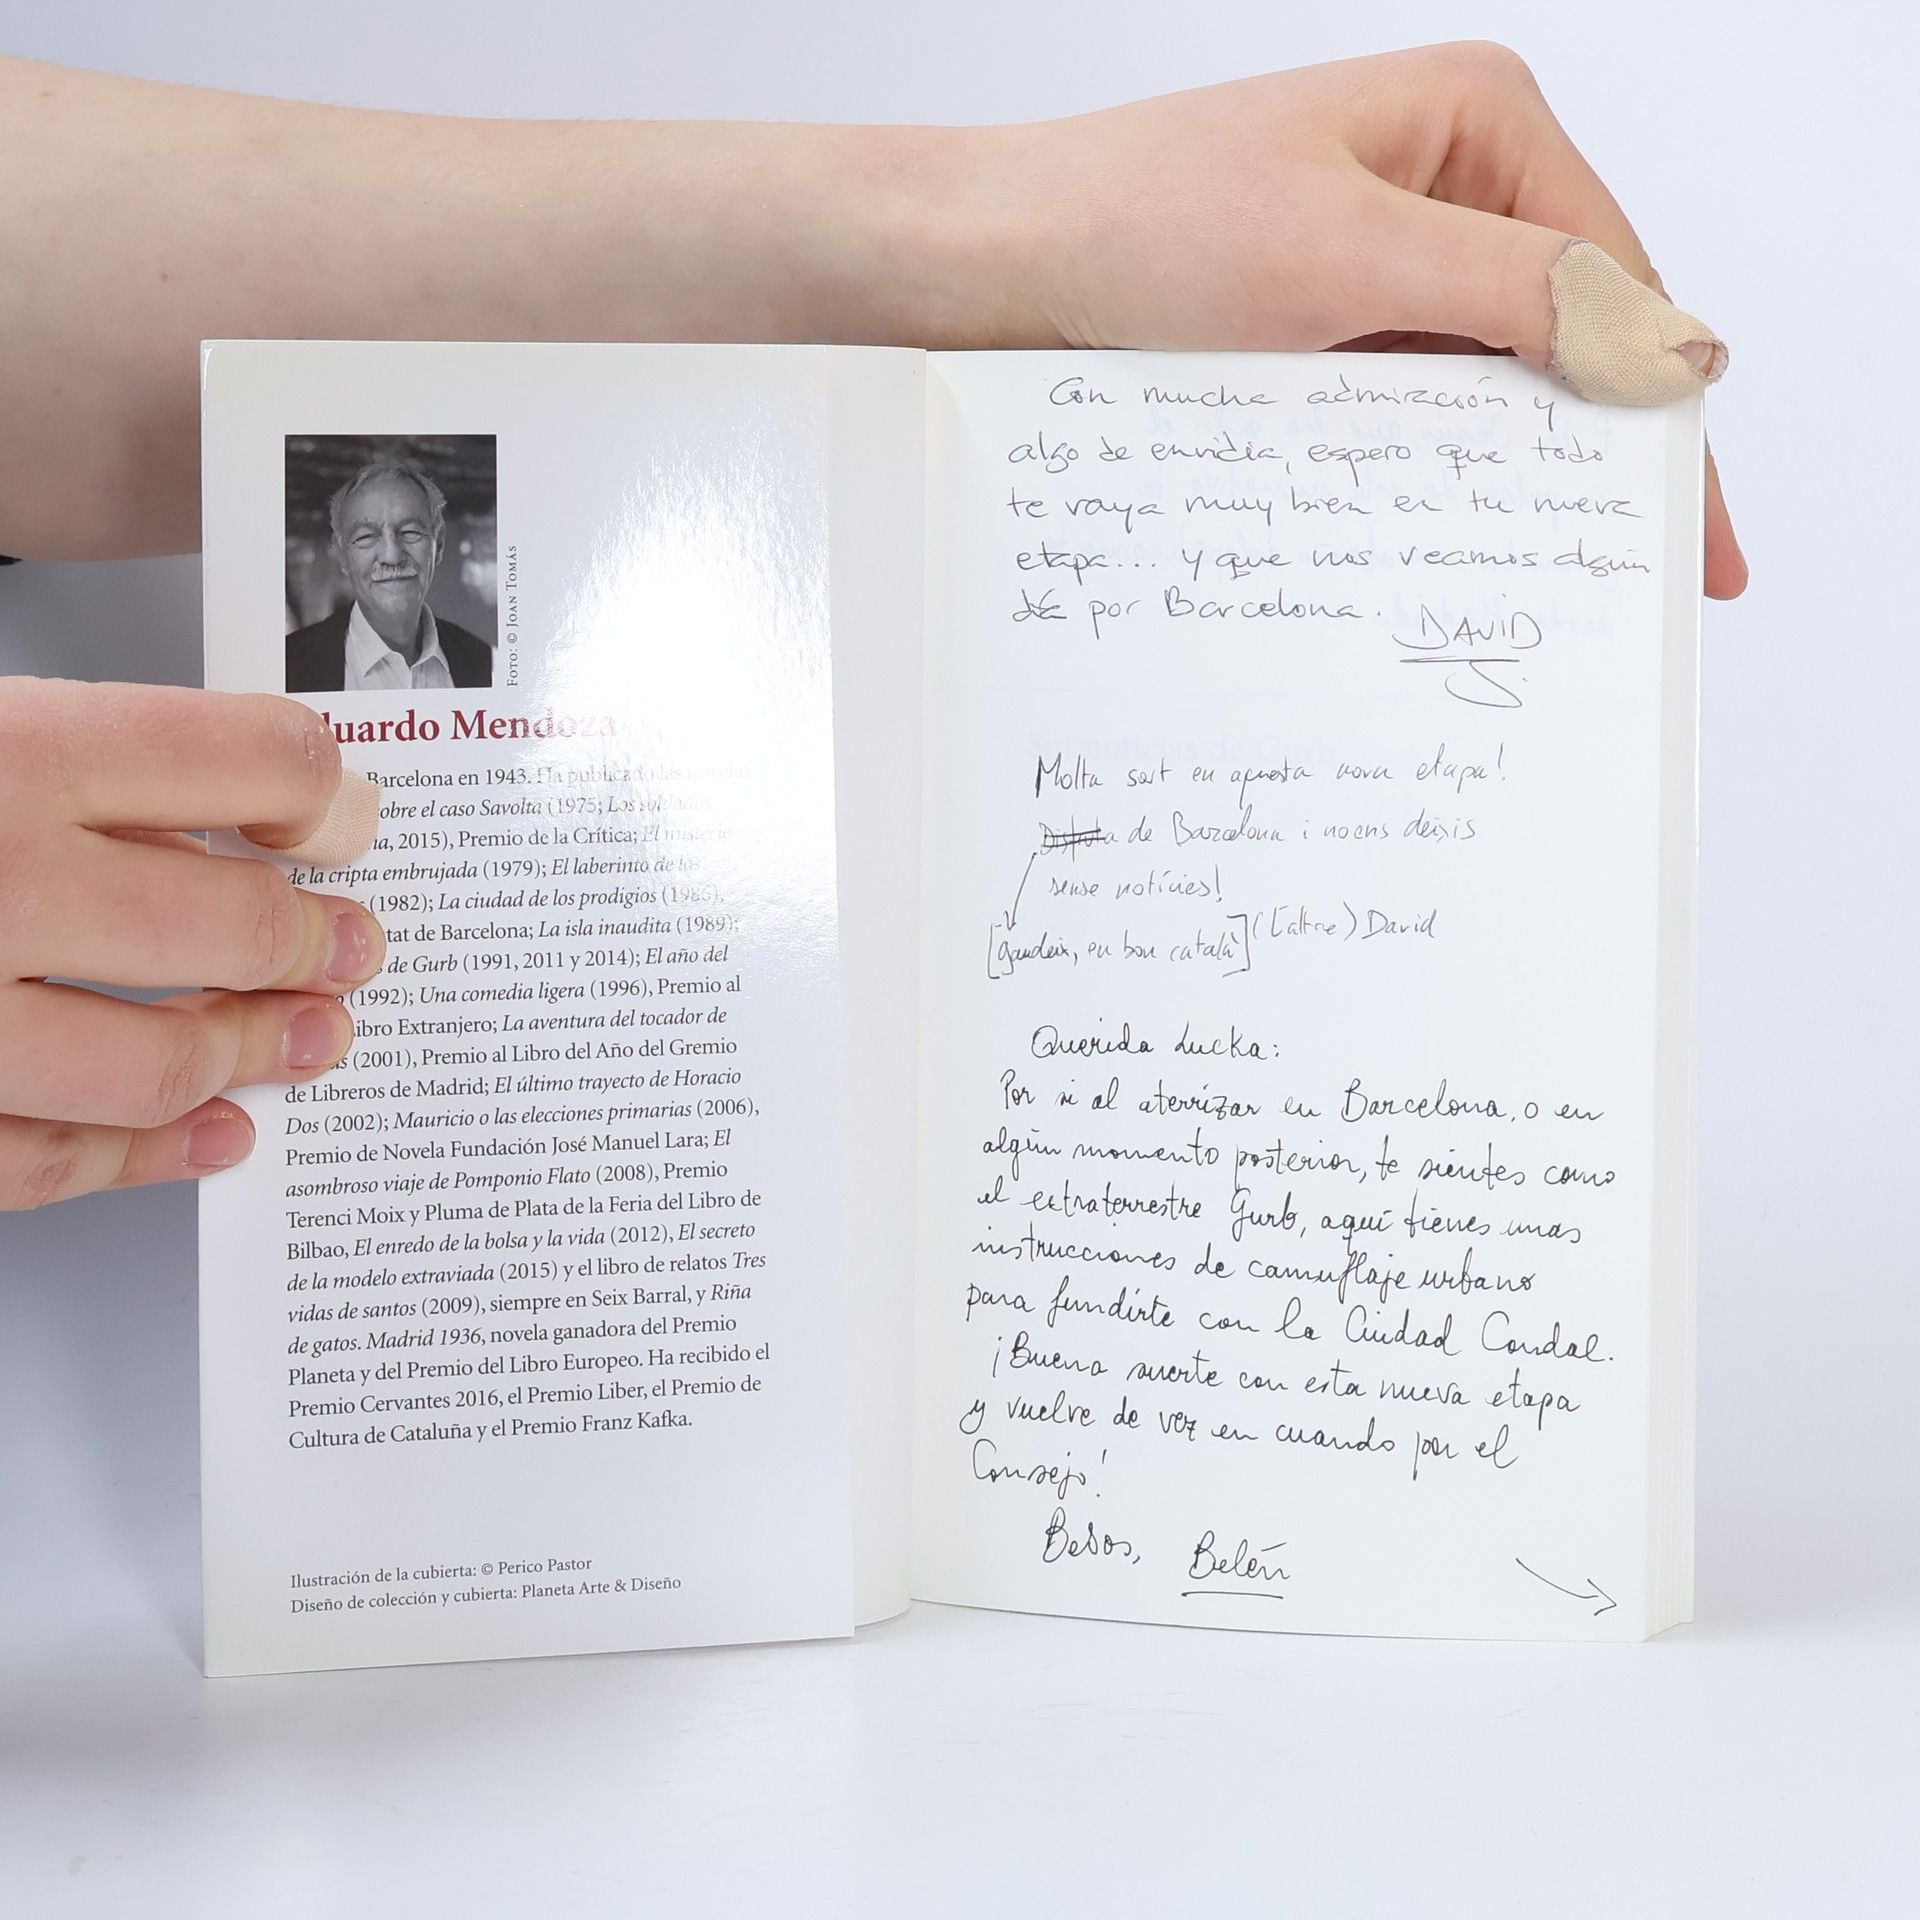 FOTO: © JOAN TOMÁS
duardo Mendoza
Barcelona en 1943. Ha publicado las novelas
sobre el caso Savolta (1975; Los soldados
2015), Premio de la Crítica; El misterio
de la cripta embrujada (1979); El laberinto de las
(1982); La ciudad de los prodigios (1986),
tat de Barcelona; La isla inaudita (1989);
s de Gurb (1991, 2011 y 2014); El año del
(1992); Una comedia ligera (1996), Premio al
Libro Extranjero; La aventura del tocador de
as (2001), Premio al Libro del Año del Gremio
de Libreros de Madrid; El último trayecto de Horacio
Dos (2002); Mauricio o las elecciones primarias (2006),
Premio de Novela Fundación José Manuel Lara; El
asombroso viaje de Pomponio Flato (2008), Premio
Terenci Moix y Pluma de Plata de la Feria del Libro de
Bilbao, El enredo de la bolsa y la vida (2012), El secreto
de la modelo extraviada (2015) y el libro de relatos Tres
vidas de santos (2009), siempre en Seix Barral, y Riña
de gatos. Madrid 1936, novela ganadora del Premio
Planeta y del Premio del Libro Europeo. Ha recibido el
Premio Cervantes 2016, el Premio Liber, el Premio de
Cultura de Cataluña y el Premio Franz Kafka.
Ilustración de la cubierta: © Perico Pastor
Diseño de colección y cubierta: Planeta Arte & Diseño
Con mucha admiración y
algo de envidia, espero que todo
te vaya muy bien en tu nueva
etapa... y que nos veamos algún
día por Barcelona.
DAVID
Molta sort en aquesta nova etapa!
Disfruta de Barcelona i no ens deixis
sense notícies!
[gaudeix, en bon català] (L'altre) David
Querida Lucka:
Por si al aterrizar en Barcelona, o en
algún momento posterior, te sientes como
el extraterrestre Gurb, aquí tienes unas
instrucciones de camuflaje urbano
para fundirte con la Ciudad Condal.
¡Buena suerte con esta nueva etapa
y vuelve de vez en cuando por el
Consejo!
Besos, Belén